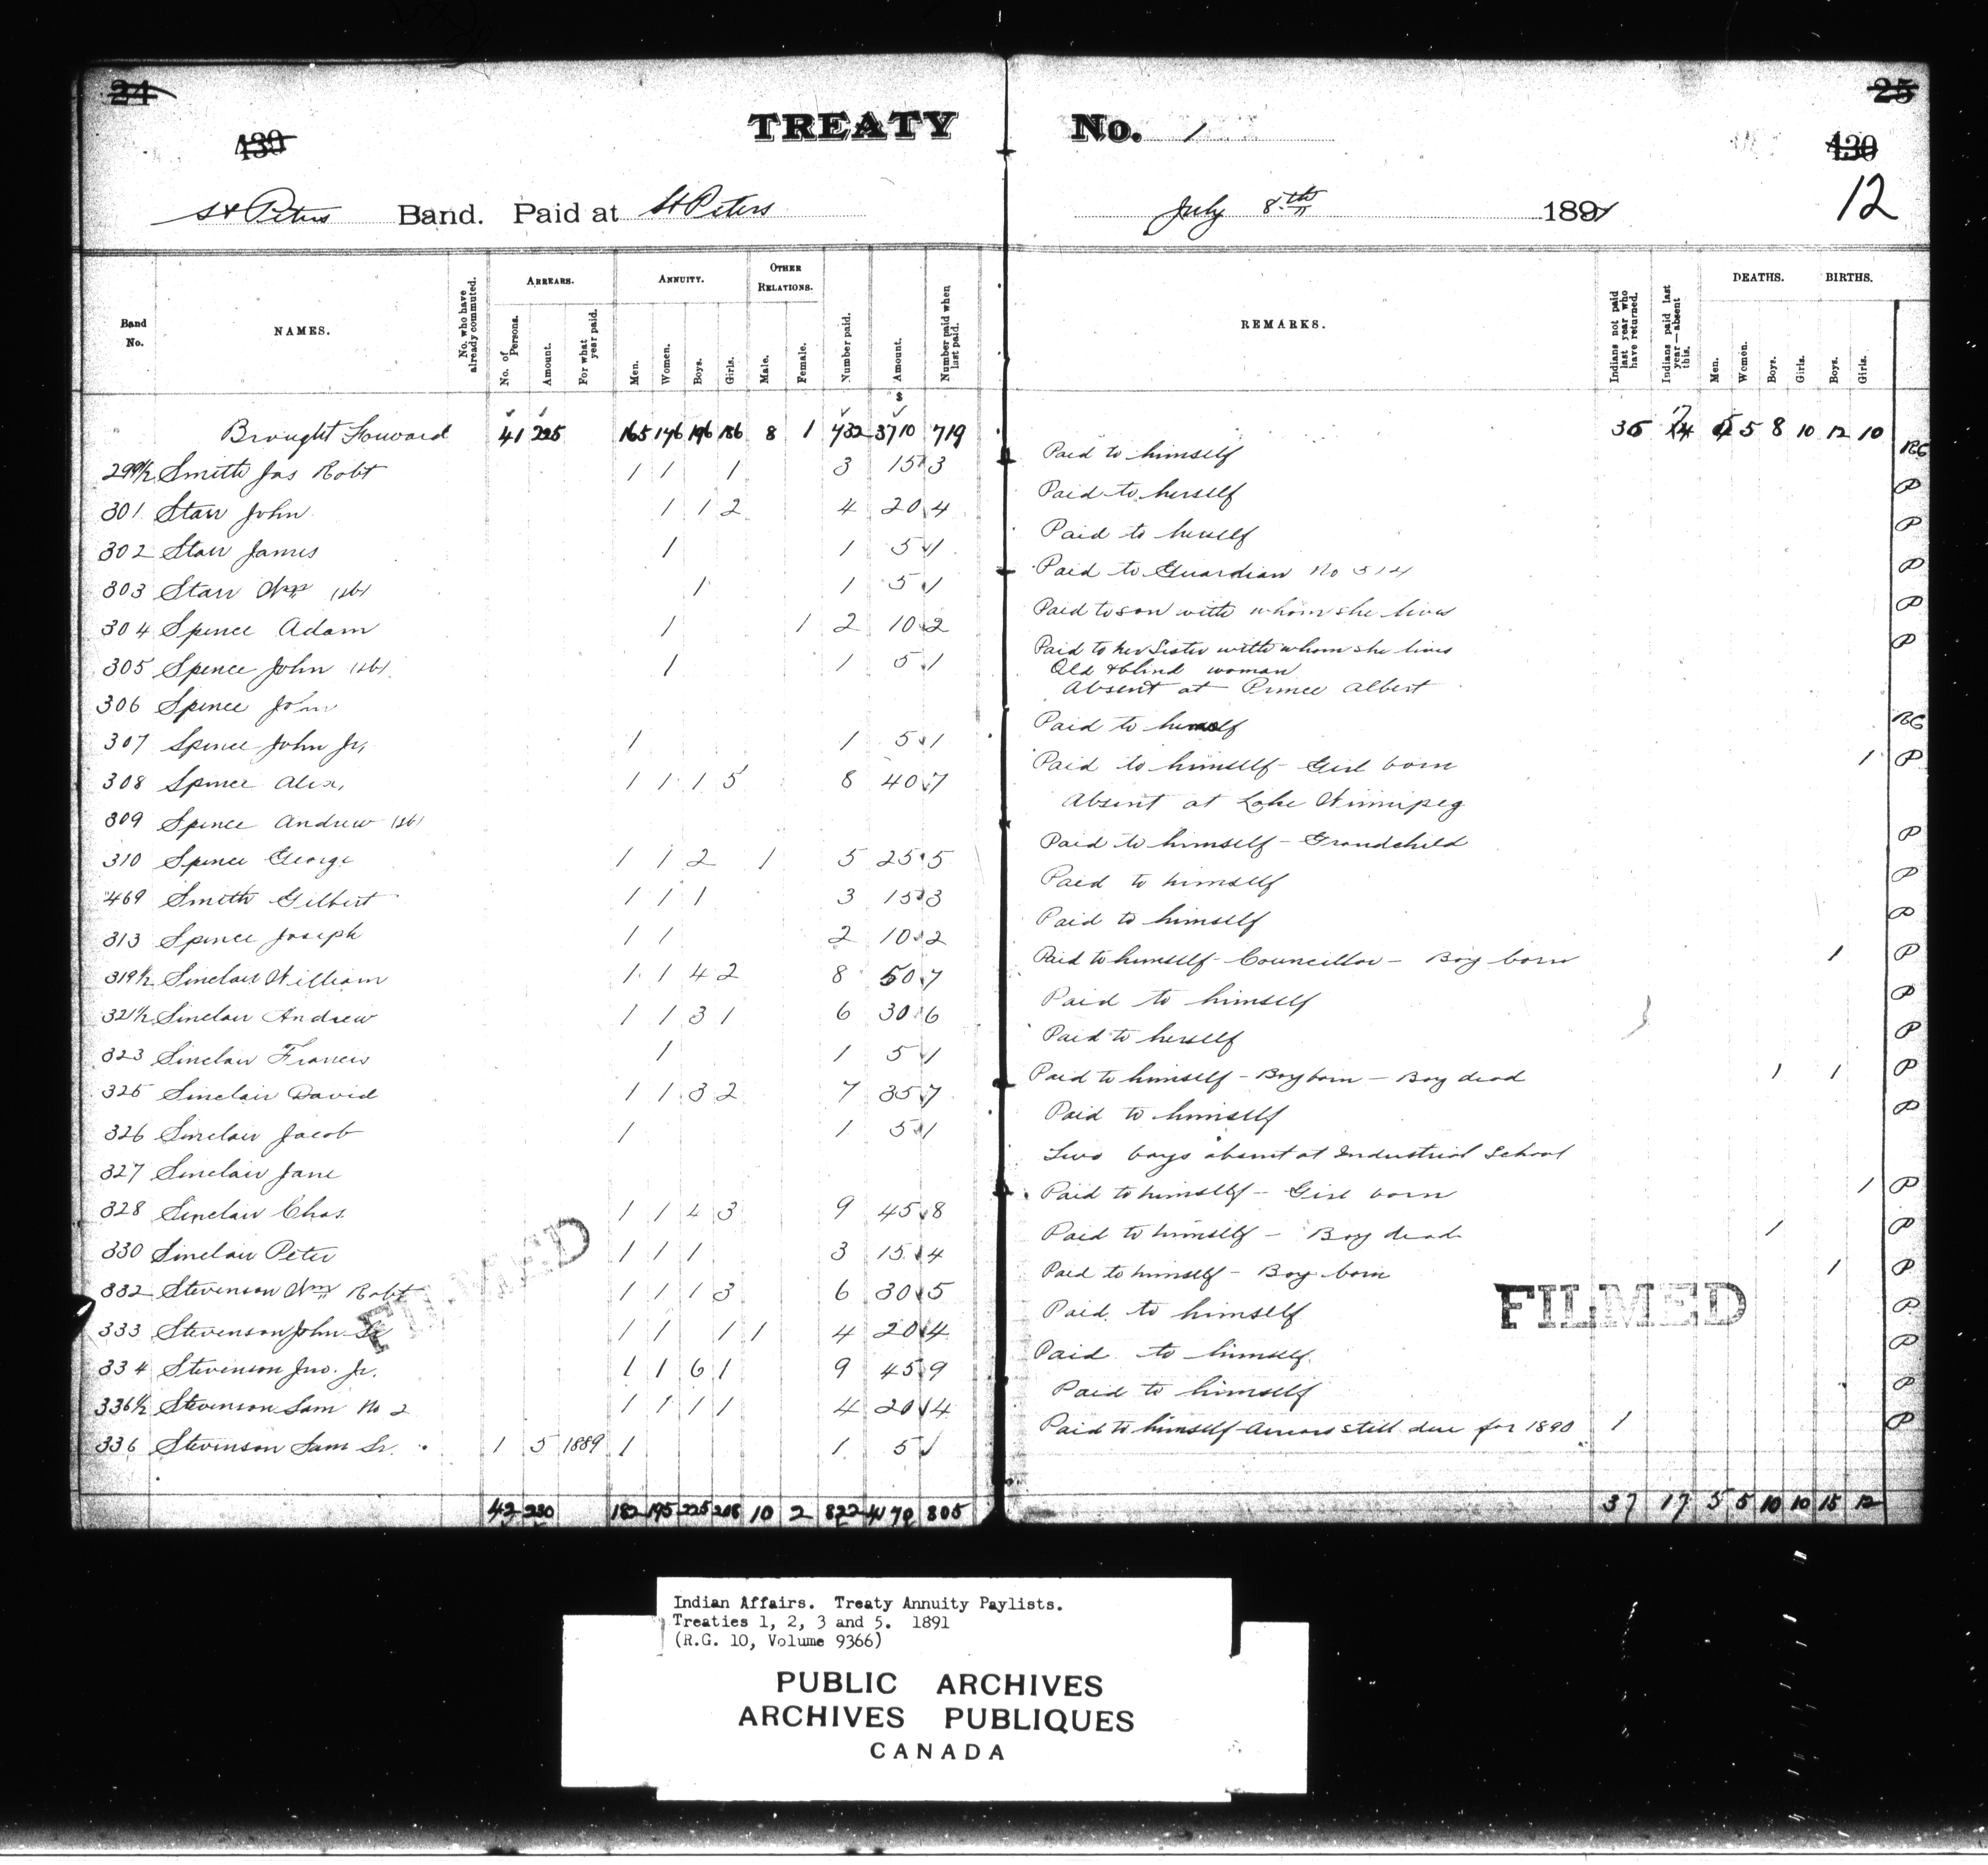 24
25
TREATY No. 1
439
430
12
St Peters Band. Paid at St Peters July 8th 1891
Band No. NAMES. No. who have already commuted. ARREARS. No. of Persons. Amount. For what year paid. ANNUITY. Men. Women. Boys. Girls. OTHER RELATIONS. Male. Female. Number paid. Amount. Number paid when last paid. REMARKS. Indians not paid last year who have returned. Indians paid last year—absent this. DEATHS. Men. Women. Boys. Girls. BIRTHS. Boys. Girls.
$
Brought Forward 41 225 165 146 196 186 8 1 732 3710 719 36 17 5 5 8 10 12 10
299½ Smith Jas Robt 1 1 1 3 15 3 Paid to himself RC
301 Starr John 1 1 2 4 20 4 Paid to herself P
302 Starr James 1 1 5 1 Paid to herself P
303 Starr Wm (1st) 1 1 5 1 Paid to Guardian No 514 P
304 Spence Adam 1 1 2 10 2 Paid to son with whom she lives P
305 Spence John (1st) 1 1 5 1 Paid to her Sister with whom she lives P
Old & blind woman
306 Spence John Absent at Prince Albert
307 Spence John Jr, 1 1 5 1 Paid to himself RC
308 Spence Alex, 1 1 1 5 8 40 7 Paid to himself - Girl born 1 P
309 Spence Andrew (1st) Absent at Lake Winnipeg
310 Spence George 1 1 2 1 5 25 5 Paid to himself - Grandchild P
469 Smith Gilbert 1 1 1 3 15 3 Paid to himself P
313 Spence Joseph 1 1 2 10 2 Paid to himself P
319½ Sinclair William 1 1 4 2 8 50 7 Paid to himself - Councillor - Boy born 1 P
321½ Sinclair Andrew 1 1 3 1 6 30 6 Paid to himself P
323 Sinclair Francis 1 1 5 1 Paid to herself P
325 Sinclair David 1 1 3 2 7 35 7 Paid to himself - Boy born - Boy dead 1 1 P
326 Sinclair Jacob 1 1 5 1 Paid to himself P
327 Sinclair Jane Two boys absent at Industrial School
328 Sinclair Chas. 1 1 4 3 9 45 8 Paid to himself - Girl born 1 P
330 Sinclair Peter 1 1 1 3 15 4 Paid to himself - Boy dead 1 P
332 Stevenson Wm Robt 1 1 1 3 6 30 5 Paid to himself - Boy born 1 P
333 Stevenson John Sr 1 1 1 1 4 20 4 Paid to himself P
334 Stevenson Jno. Jr. 1 1 6 1 9 45 9 Paid to himself P
336½ Stevenson Sam No 2 1 1 1 1 4 20 4 Paid to himself P
336 Stevenson Sam Sr. 1 5 1889 1 1 5 Paid to himself - Arrears still due for 1890 1 P
42 230 182 195 225 208 10 2 822 4170 805 37 17 5 5 10 10 15 12
FILMED
FILMED
Indian Affairs. Treaty Annuity Paylists.
Treaties 1, 2, 3 and 5. 1891
(R.G. 10, Volume 9366)
PUBLIC ARCHIVES
ARCHIVES PUBLIQUES
CANADA